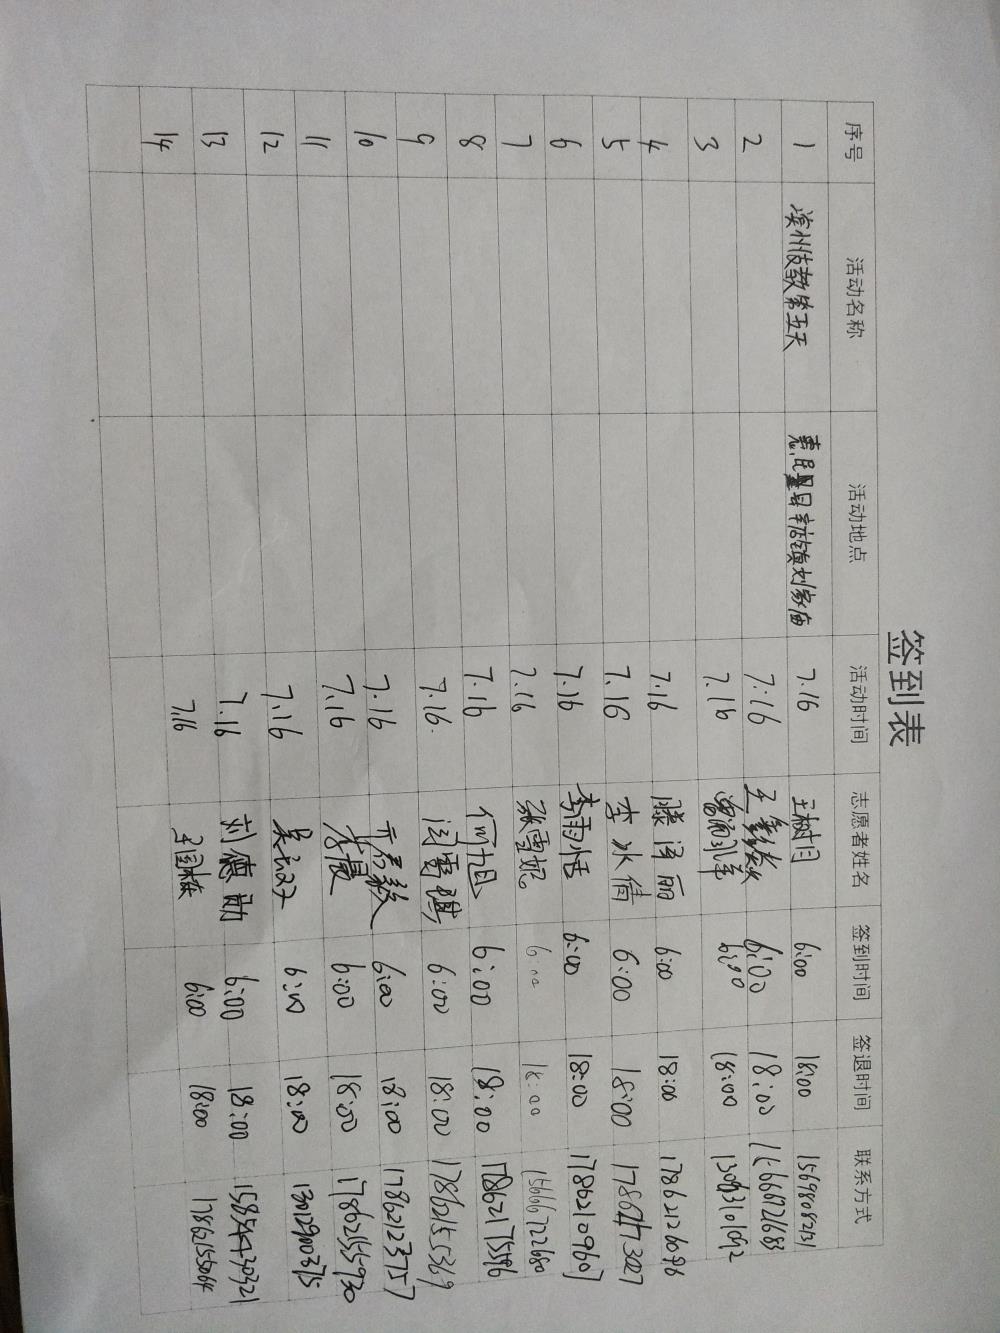 签到表
序号 活动名称 活动地点 活动时间 志愿者姓名 签到时间 签退时间 联系方式
1 滨州支教第五天 惠民县辛店镇刘家庙 7.16 王树月 6:00 18:00 15698082131
2 7.16 王鑫 6:00 18:00
3 7.16 6:00 18:00 13093101092
4 7.16 滕泽丽 6:00 18:00 17862126096
5 7.16 李冰倩 6:00 18:00
6 7.16 李雨恬 6:00 18:00 17862109607
7 7.16 张雪妮 6:00 18:00 15666722680
8 7.16 何旭 6:00 18:00 17862175596
9 7.16. 闫雪琪 6:00 18:00 17862155369
10 7.16 亓孝毅 6:00 18:00 17862123757
11 7.16 李晨 6:00 18:00 17862155930
12 7.16 吴 6:00 18:00 13012900375
13 7.16 刘德勋 6:00 18:00 15854430321
14 7.16 王国栋 6:00 18:00 17862155064